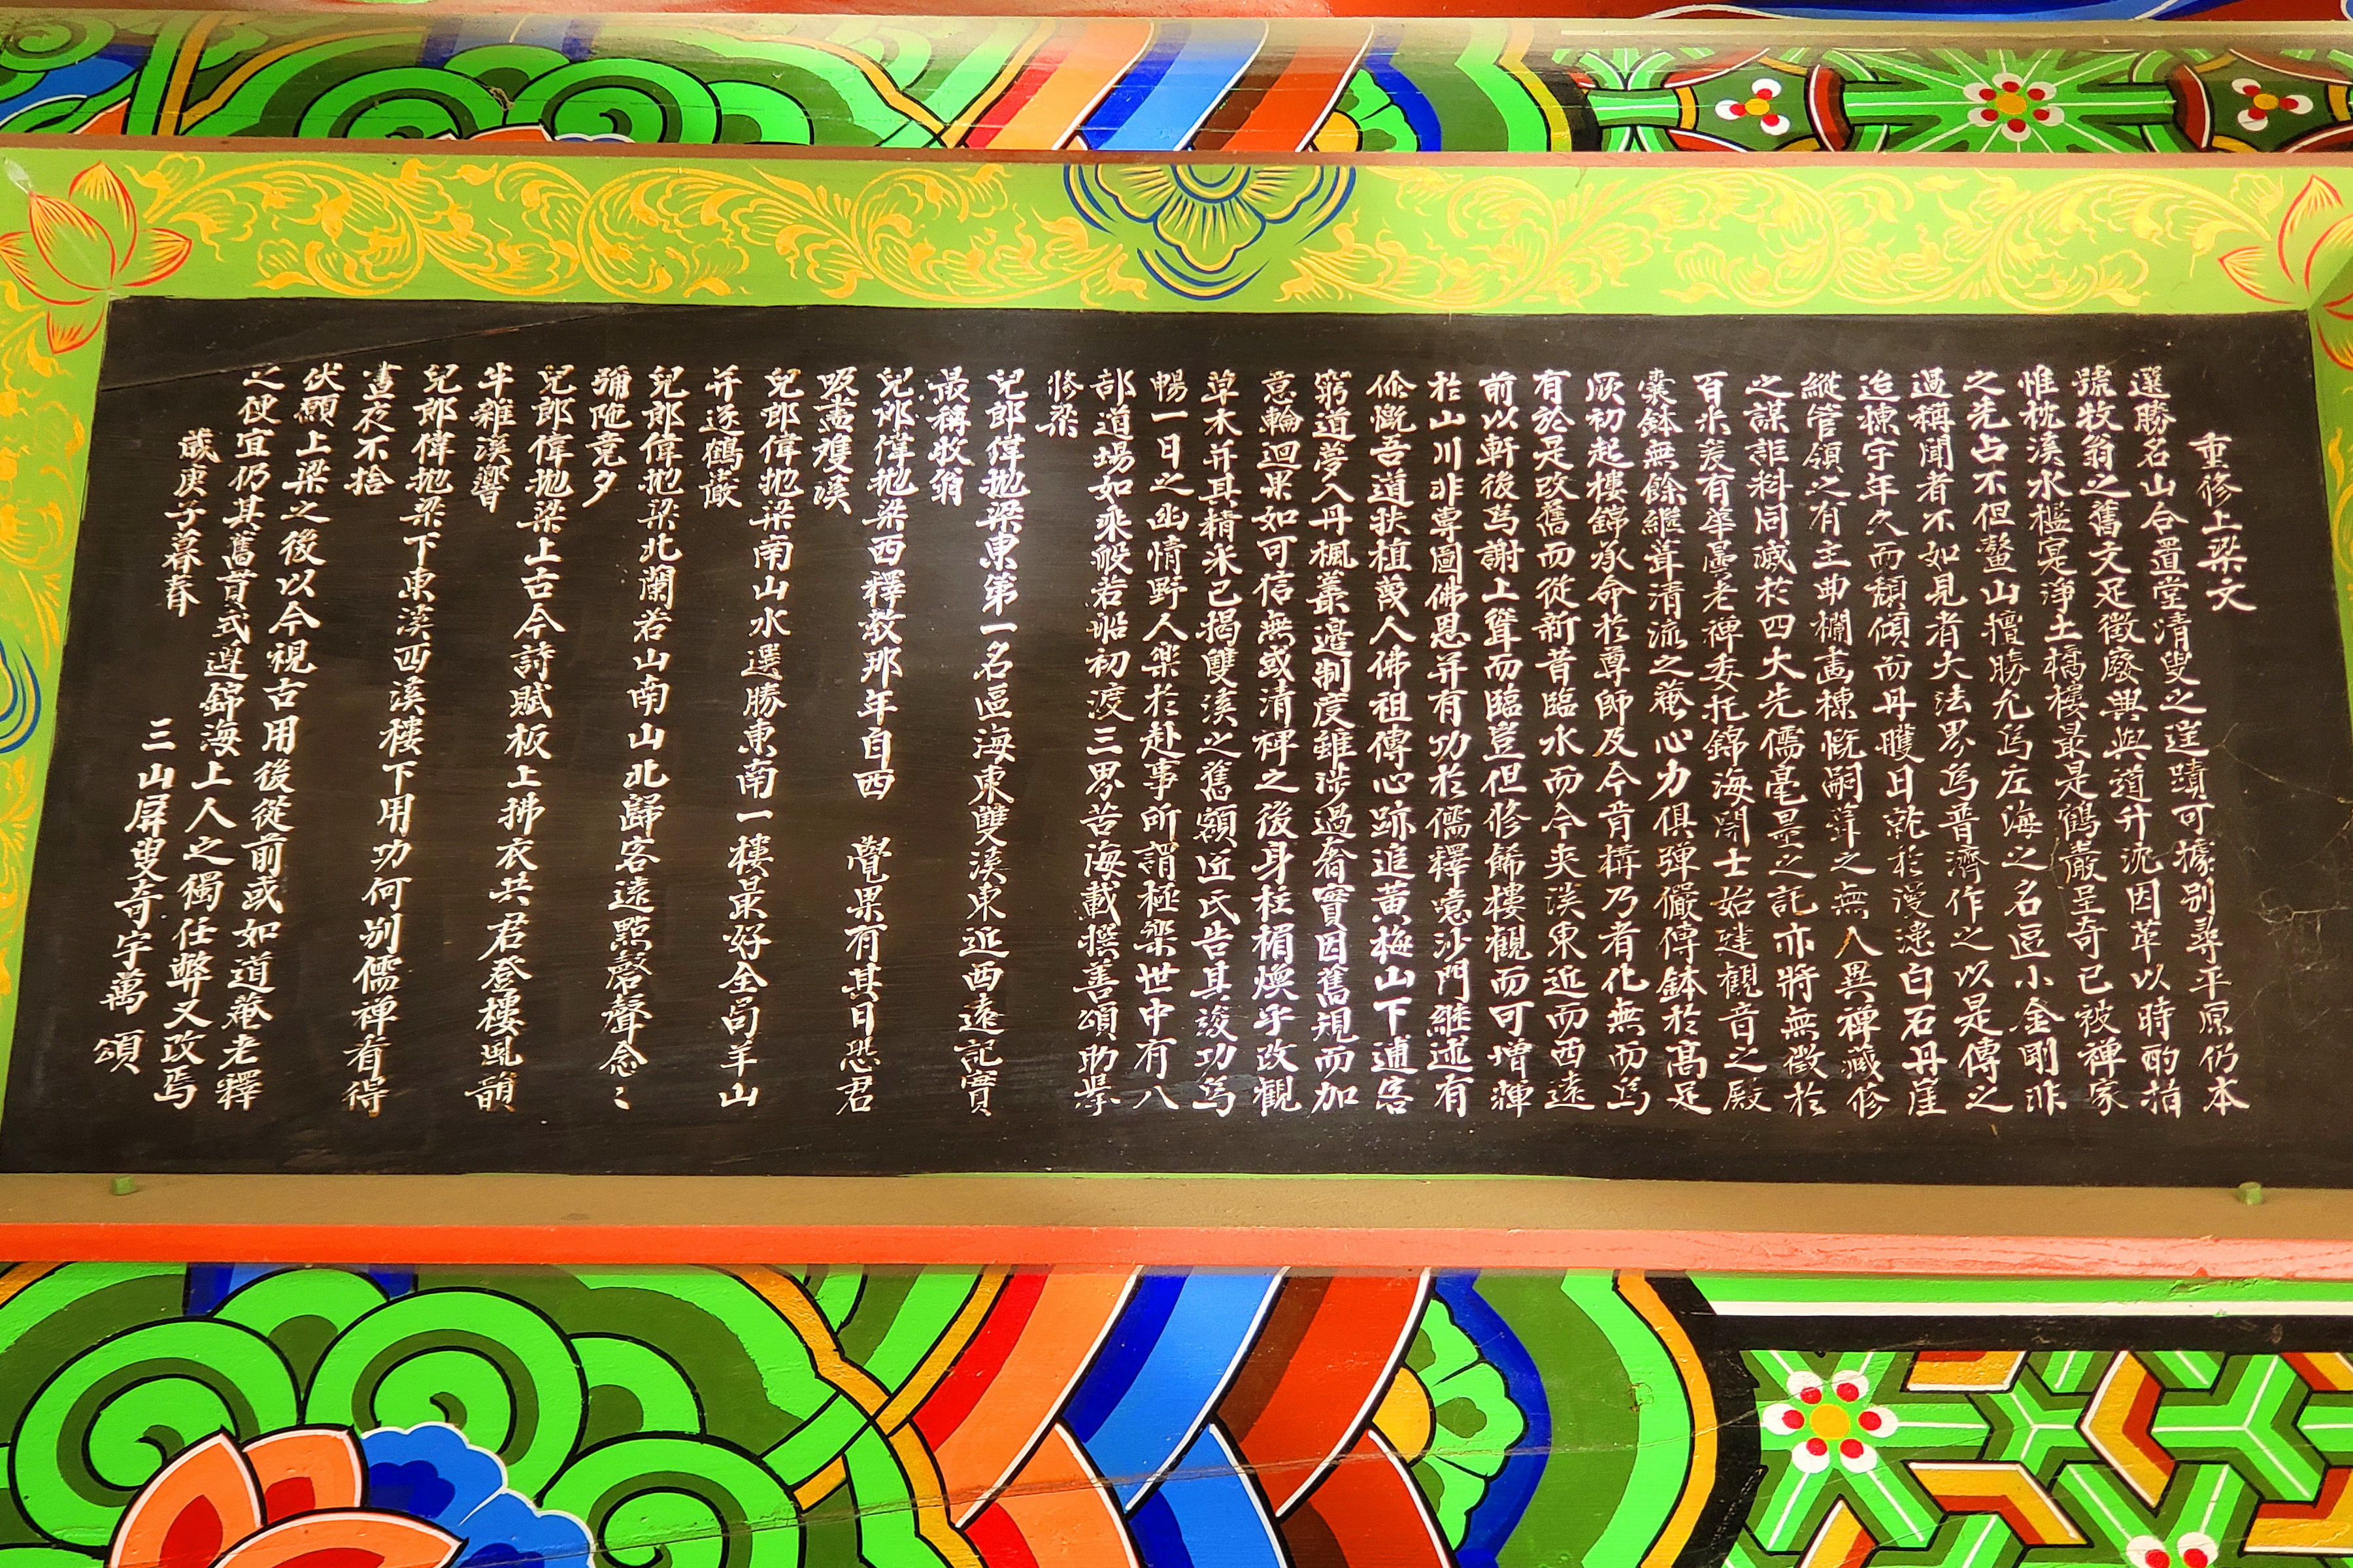 重修上梁文
選勝名山合置堂清叟之遑蹟可據別尋平原仍本
號牧翁之舊文足徵廢興與道升沈因革以時酌指
惟枕溪水檻寔淨土橋樓最是鶴巖呈奇已被禪家
之先占不但鰲山擅勝允爲左海之名區小金剛非
過稱聞者不如見者大法界爲普濟作之以是傳之
迨棟宇年久而頹傾而丹雘日就於漫漶白石丹崖
縱管領之有主曲欄畫棟慨嗣葺之無人異禪藏修
之謀詎料同滅於四大先儒毫墨之託亦將無徵於
百米爰有華曇老禪委托錦海開士始建觀音之殿
囊鉢無餘繼葺清流之菴心力俱彈儼傳鉢於高足
厥初起樓錦承命於尊師及今肯構乃者化無而爲
有於是改舊而從新昔臨水而今夾溪東近而西遠
前以軒後爲謝上聳而臨豈但修餙樓觀而可增輝
於山川非專圖佛恩并有功於儒釋噫沙門繼述有
俭慨吾道扶植蔑人佛祖傳心跡追黃梅山下逋客
窮道夢入丹楓叢邊制度雖涉過奢實因舊規而加
意輪迴果如可信無或清禪之後身柱楣煥乎改觀
草木并其精米已揭雙溪之舊額近氏告其竣功爲
暢一日之幽情野人樂於赴事所謂極樂世中有八
部道場如乘般若船初渡三界苦海載撰善頌助擧
修梁
兒郎偉抛梁東第一名區海東雙溪東近西遠記實
最稱牧翁
兒郎偉抛梁西釋教那年自西 覺果有其日恐君
吸盡雙溪
兒郎偉抛梁南山水選勝東南一樓最好全局羊山
并迓鶴巖
兒郎偉抛梁北蘭若山南山北歸客遠點磬聲念〻
彌陀竟夕
兒郎偉抛梁上古今詩賦板上拂衣共君登樓風韻
牛雜溪響
兒郎偉抛梁下東溪西溪樓下用功何別儒禪看得
晝夜不捨
伏願上梁之後以今視古用後從前或如道菴老釋
之便宜仍其舊貫式遵錦海上人之獨任弊又改焉
歲庚子暮春
三山屏叟奇宇萬 頌